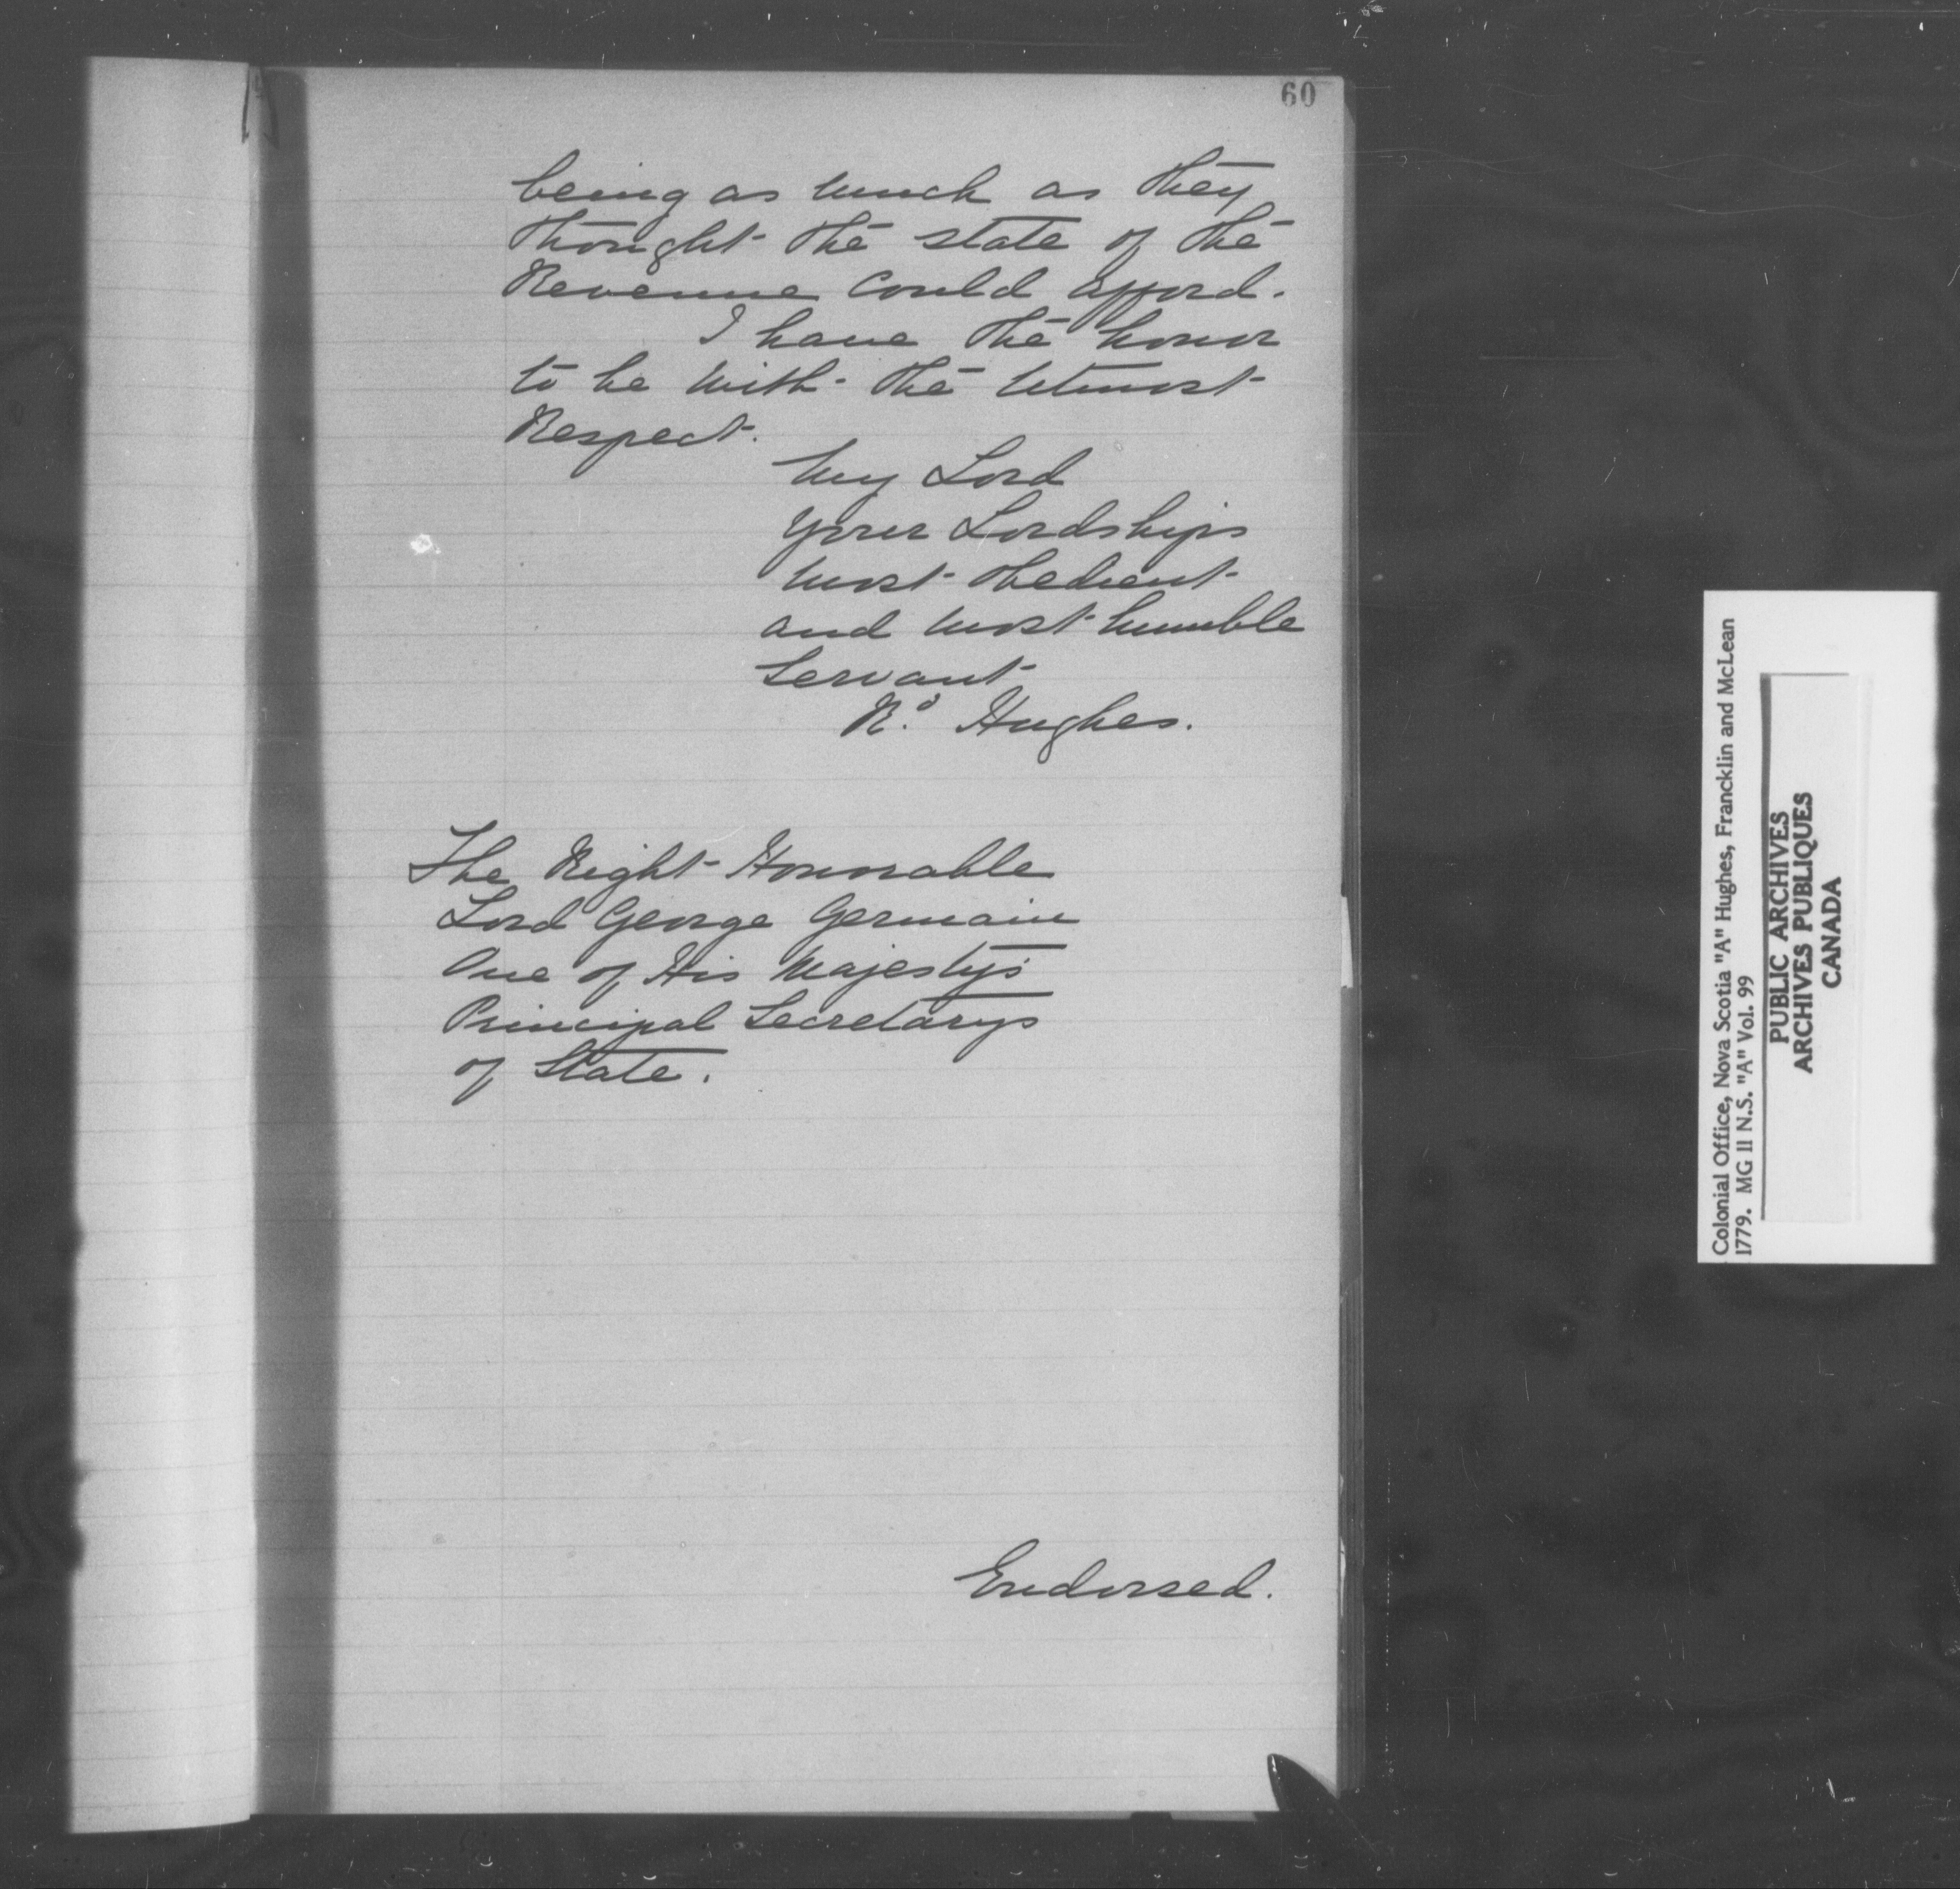 60
being as much as they
thought the state of the
Revenue Could afford.
I have the honor
to be with the Utmost
Respect.
My Lord
Your Lordships
most obedient
and most humble
Servant
R.d Hughes.
The Right Honorable
Lord George Germain
One of His Majesty's
Principal Secretarys
of State.
Endorsed.
Colonial Office, Nova Scotia "A" Hughes, Francklin and McLean
1779. MG 11 N.S. "A" Vol. 99
PUBLIC ARCHIVES
ARCHIVES PUBLIQUES
CANADA